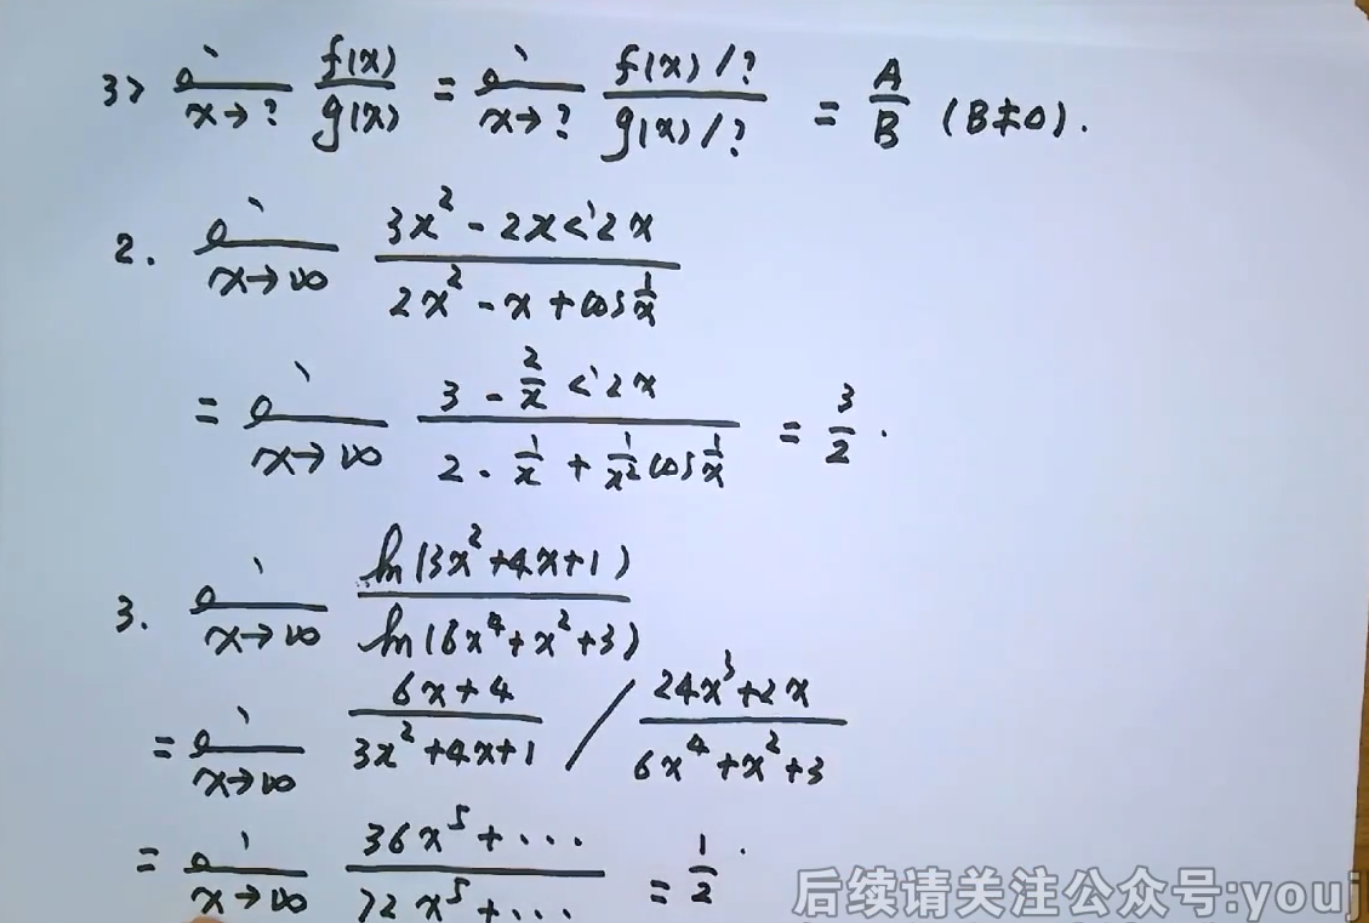 3> lim x→? f(x)/g(x) = lim x→? (f(x)/?)/(g(x)/?) = A/B (B≠0).
2. lim x→∞ (3x² - 2x sin2x)/(2x² - x + cos 1/x)
= lim x→∞ (3 - 2/x sin2x)/(2 - 1/x + 1/x² cos 1/x) = 3/2.
3. lim x→∞ ln(3x²+4x+1)/ln(6x⁴+x²+3)
= lim x→∞ (6x+4)/(3x²+4x+1) / (24x³+2x)/(6x⁴+x²+3)
= lim x→∞ (36x⁵+···)/(72x⁵+···) = 1/2.
后续请关注公众号:youj